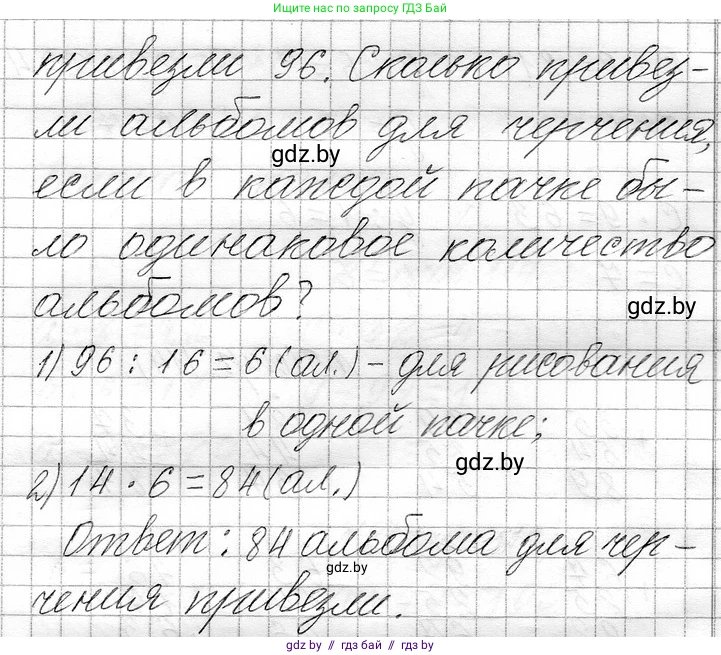 Ищите нас по запросу ГДЗ Бай
привезли 96. Сколько привез-
ли альбомов для черчения,
gdz.by
если в каждой пачке бы-
ло одинаковое количество
альбомов?
gdz.by
1) 96 : 16 = 6 (ал.) - для рисования
в одной пачке;
gdz.by
2) 14 · 6 = 84 (ал.)
Ответ: 84 альбома для чер-
gdz.by
чения привезли.
gdz.by // гдз бай // гдз by